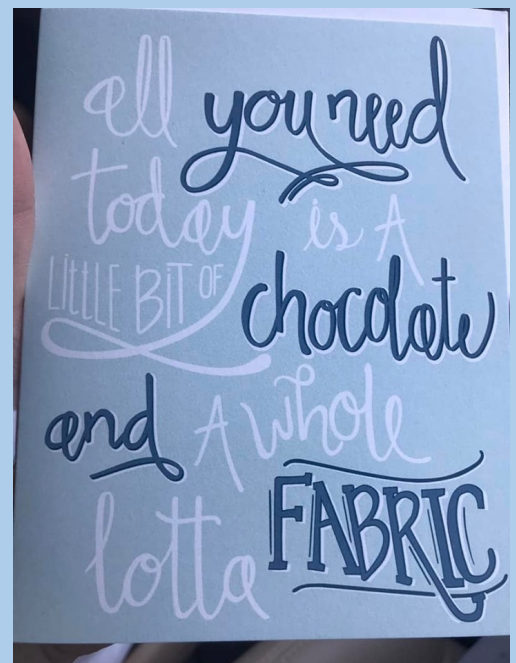 all you need
today is A
LITTLE BIT OF
chocolate
and A whole
lotta FABRIC